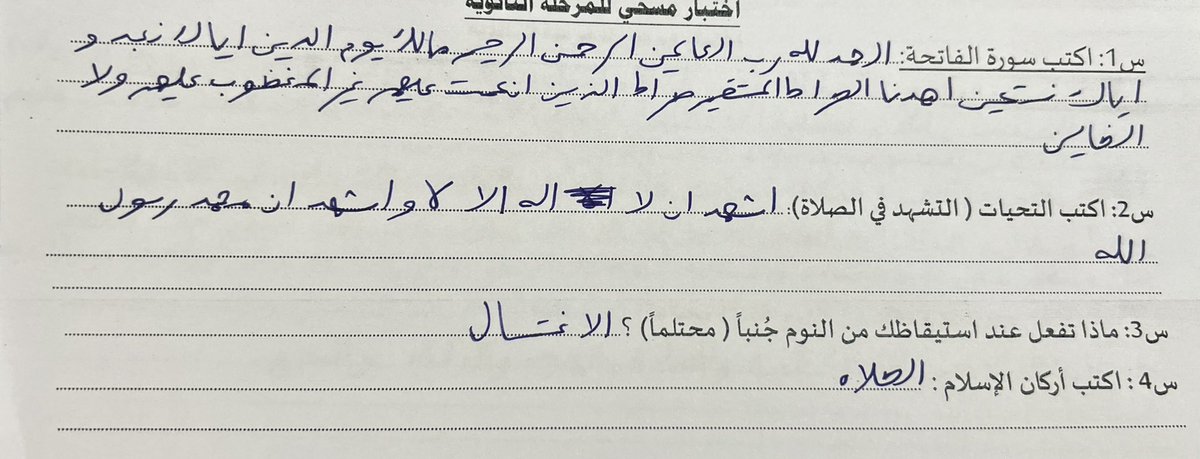 اختبار مسحي للمرحلة الثانوية
س1: اكتب سورة الفاتحة: الحمد لله رب العالمين الرحمن الرحيم مالك يوم الدين اياك نعبد و
اياك نستعين اهدنا الصراط المستقيم صراط الذين انعمت عليهم غير المغظوب عليهم ولا
الظالين
س2: اكتب التحيات ( التشهد في الصلاة): اشهد ان لا اله الا لا و اشهد ان محمد رسول
الله
س3: ماذا تفعل عند استيقاظك من النوم جُنباً ( محتلماً) ؟ الاغتسال
س4: اكتب أركان الإسلام : الصلاه